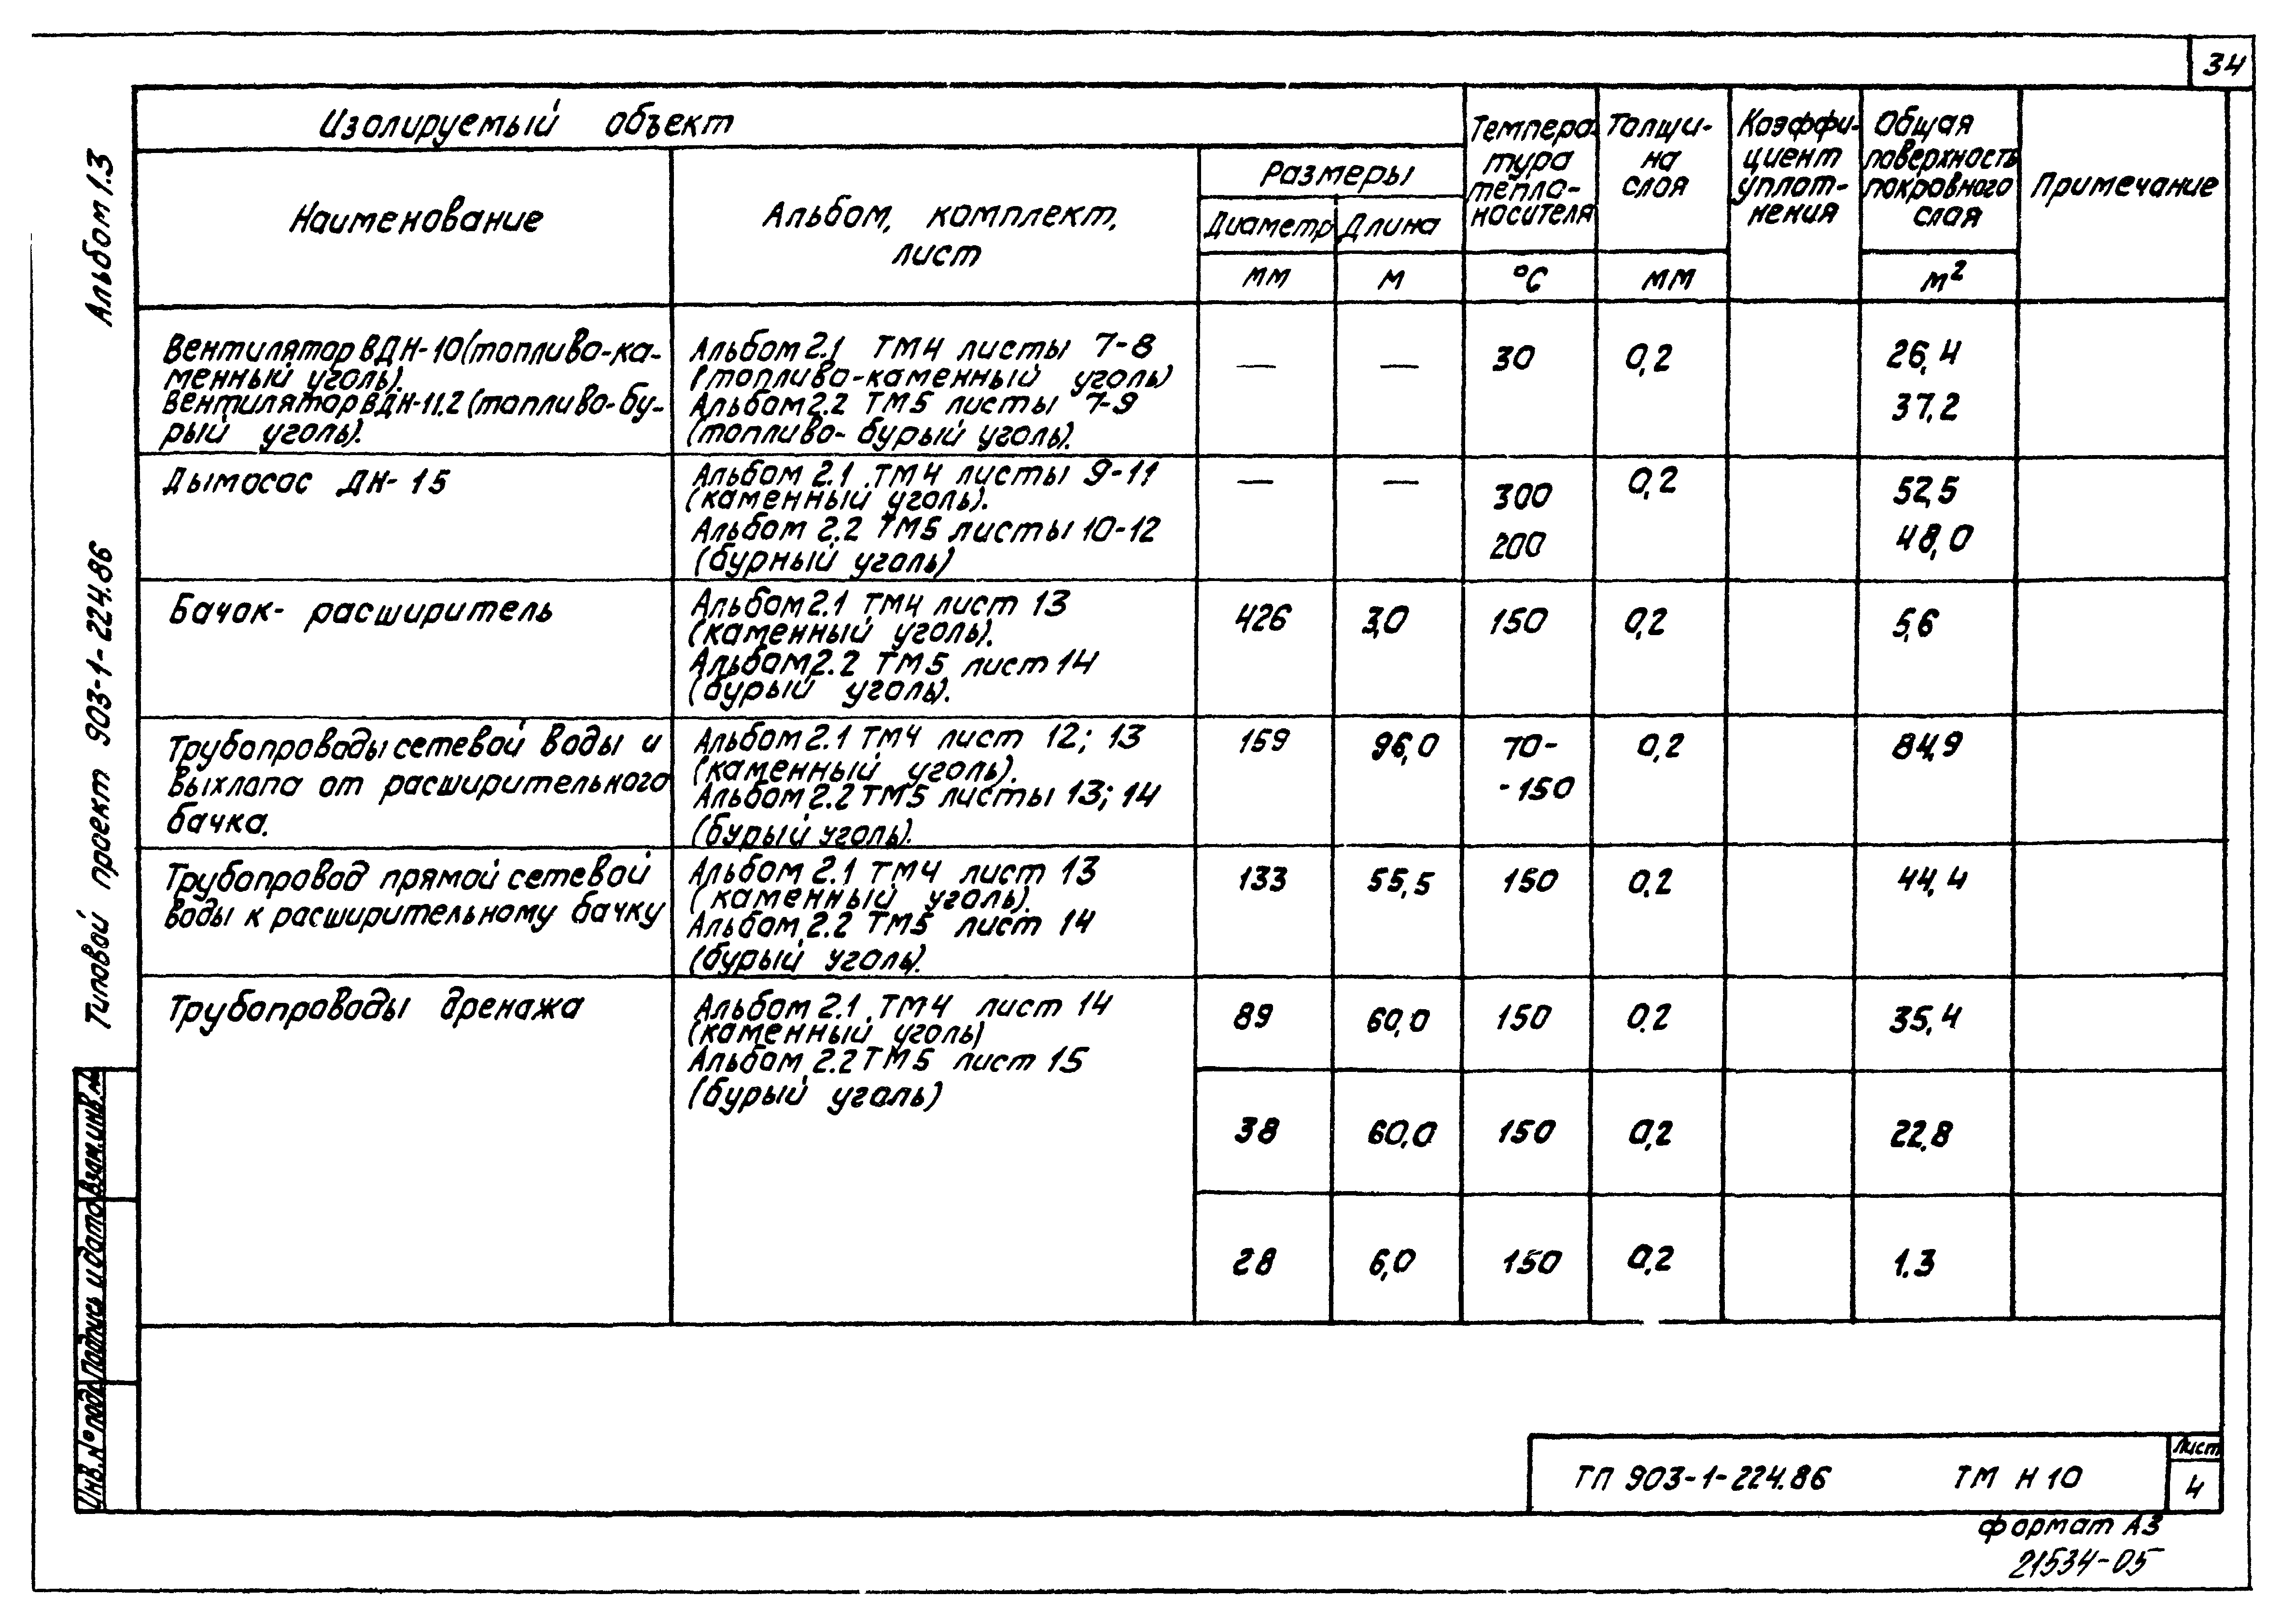 34
Альбом 1.3
Типовой проект 903-1-224.86
Изолируемый объект
Наименование
Альбом, комплект,
лист
Размеры
Диаметр
Длина
мм
м
Темпера-
тура
тепло-
носителя
°С
Толщи-
на
слоя
мм
Коэффи-
циент
уплот-
нения
Общая
поверхность
покровного
слоя
м²
Примечание
Вентилятор ВДН-10 (топливо-ка-
менный уголь).
Вентилятор ВДН-11.2 (топливо-бу-
рый уголь).
Альбом 2.1 ТМ4 листы 7-8
(топливо-каменный уголь)
Альбом 2.2 ТМ5 листы 7-9
(топливо-бурый уголь).
—
—
30
0,2
26,4
37,2
Дымосос ДН-15
Альбом 2.1 ТМ4 листы 9-11
(каменный уголь).
Альбом 2.2 ТМ5 листы 10-12
(бурный уголь)
—
—
300
200
0,2
52,5
48,0
Бачок-расширитель
Альбом 2.1 ТМ4 лист 13
(каменный уголь).
Альбом 2.2 ТМ5 лист 14
(бурый уголь).
426
3,0
150
0,2
5,6
Трубопроводы сетевой воды и
выхлопа от расширительного
бачка.
Альбом 2.1 ТМ4 лист 12; 13
(каменный уголь).
Альбом 2.2 ТМ5 листы 13; 14
(бурый уголь).
159
96,0
70-
-150
0,2
84,9
Трубопровод прямой сетевой
воды к расширительному бачку
Альбом 2.1 ТМ4 лист 13
(каменный уголь).
Альбом 2.2 ТМ5 лист 14
(бурый уголь).
133
55,5
150
0,2
44,4
Трубопроводы дренажа
Альбом 2.1 ТМ4 лист 14
(каменный уголь)
Альбом 2.2 ТМ5 лист 15
(бурый уголь)
89
60,0
150
0.2
35,4
38
60,0
150
0,2
22.8
28
6,0
150
0,2
1.3
Взам.инв.№
Подпись и дата
Инв.№ подл
ТП 903-1-224.86 ТМ Н10
Лист
4
формат А3
21534-05